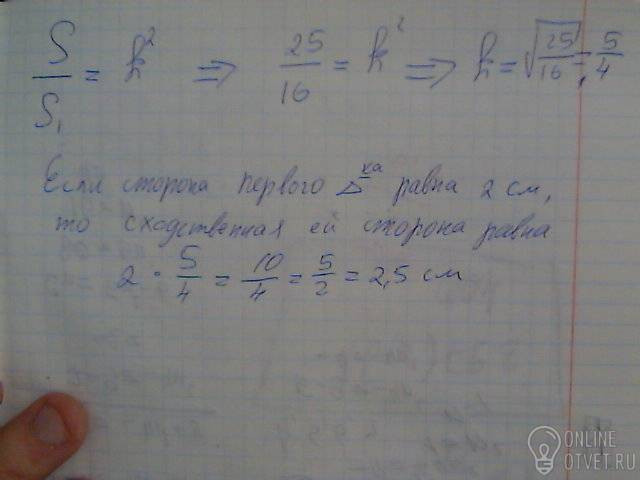 S/S₁ = k² ⇒ 25/16 = k² ⇒ k = √25/16 = 5/4
Если сторона первого Δка равна 2 см,
то сходственная ей сторона равна
2 · 5/4 = 10/4 = 5/2 = 2,5 см
ONLINE
OTVET.RU